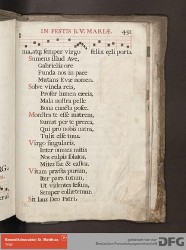 IN FESTIS B.V. MARIÆ.
451
ma, atq; semper virgo felix cęli porta.
Sumens illud Ave,
Gabrielis ore
Funda nos in pace
Mutans Evæ nomen.
Solve vincla reis,
Profer lumen cæcis,
Mala nostra pelle
Bona cuncta posce.
Monstra te esse matrem,
Sumat per te preces,
Qui pro nobis natus,
Tulit esse tuus.
Virgo singularis,
Inter omnes mitis
Nos culpis solutos,
Mites fac & castos.
Vitam præsta puram,
Iter para tutum,
Ut videntes Jesum,
Semper collætemur.
Sit laus Deo Patri,
DFG